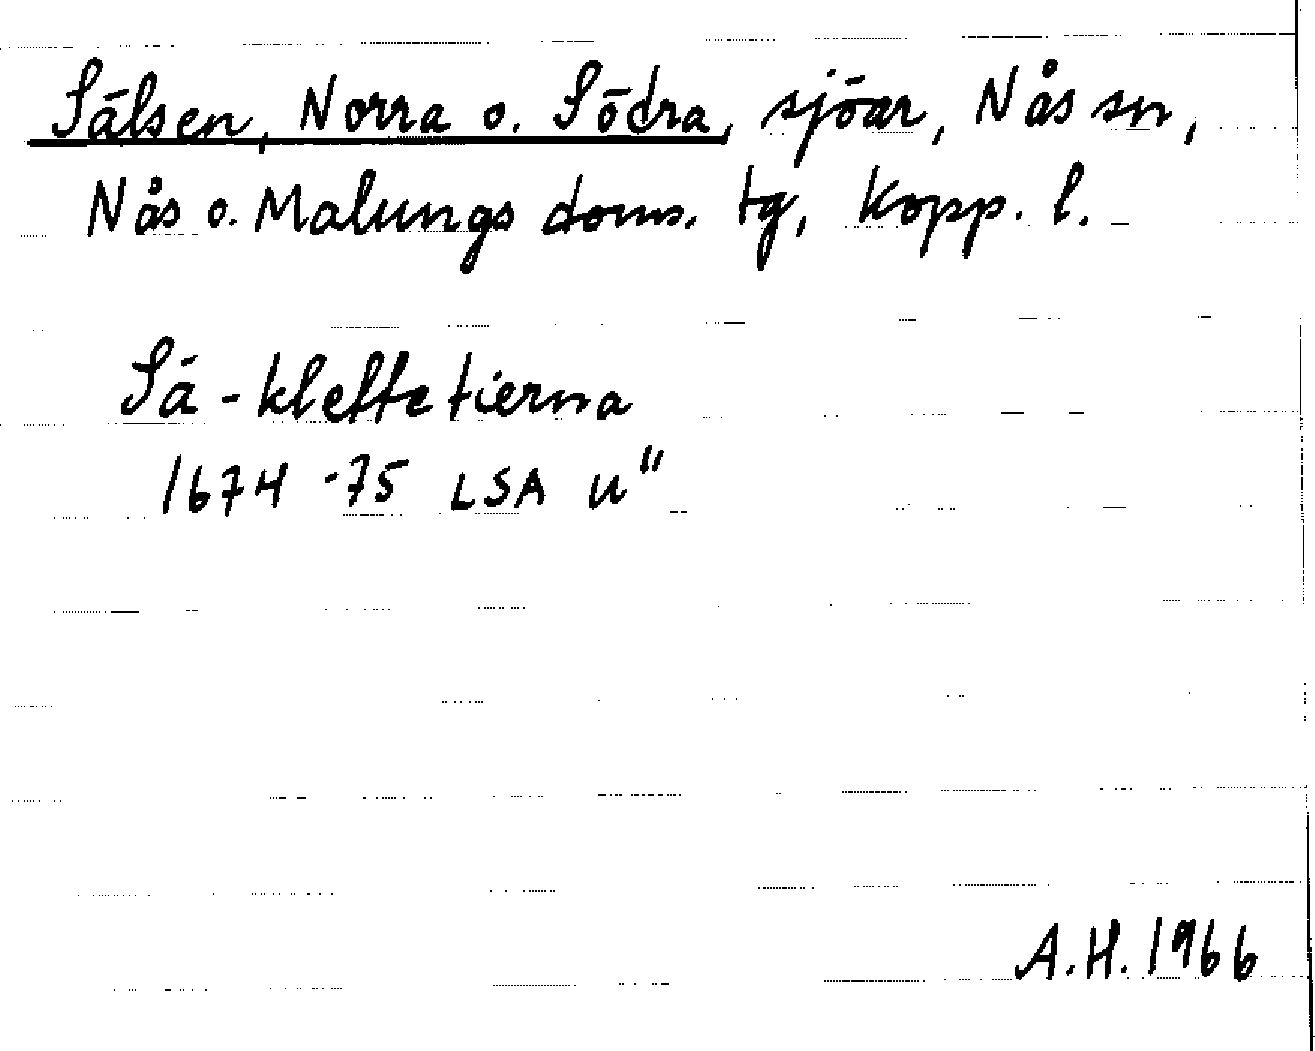 Sälsen, Norra o. Södra, sjöar, Nås sn,
Nås o. Malungs doms. tg, Kopp. l.
Sä-kleffetierna
1674-75 LSA u"
A.H. 1966